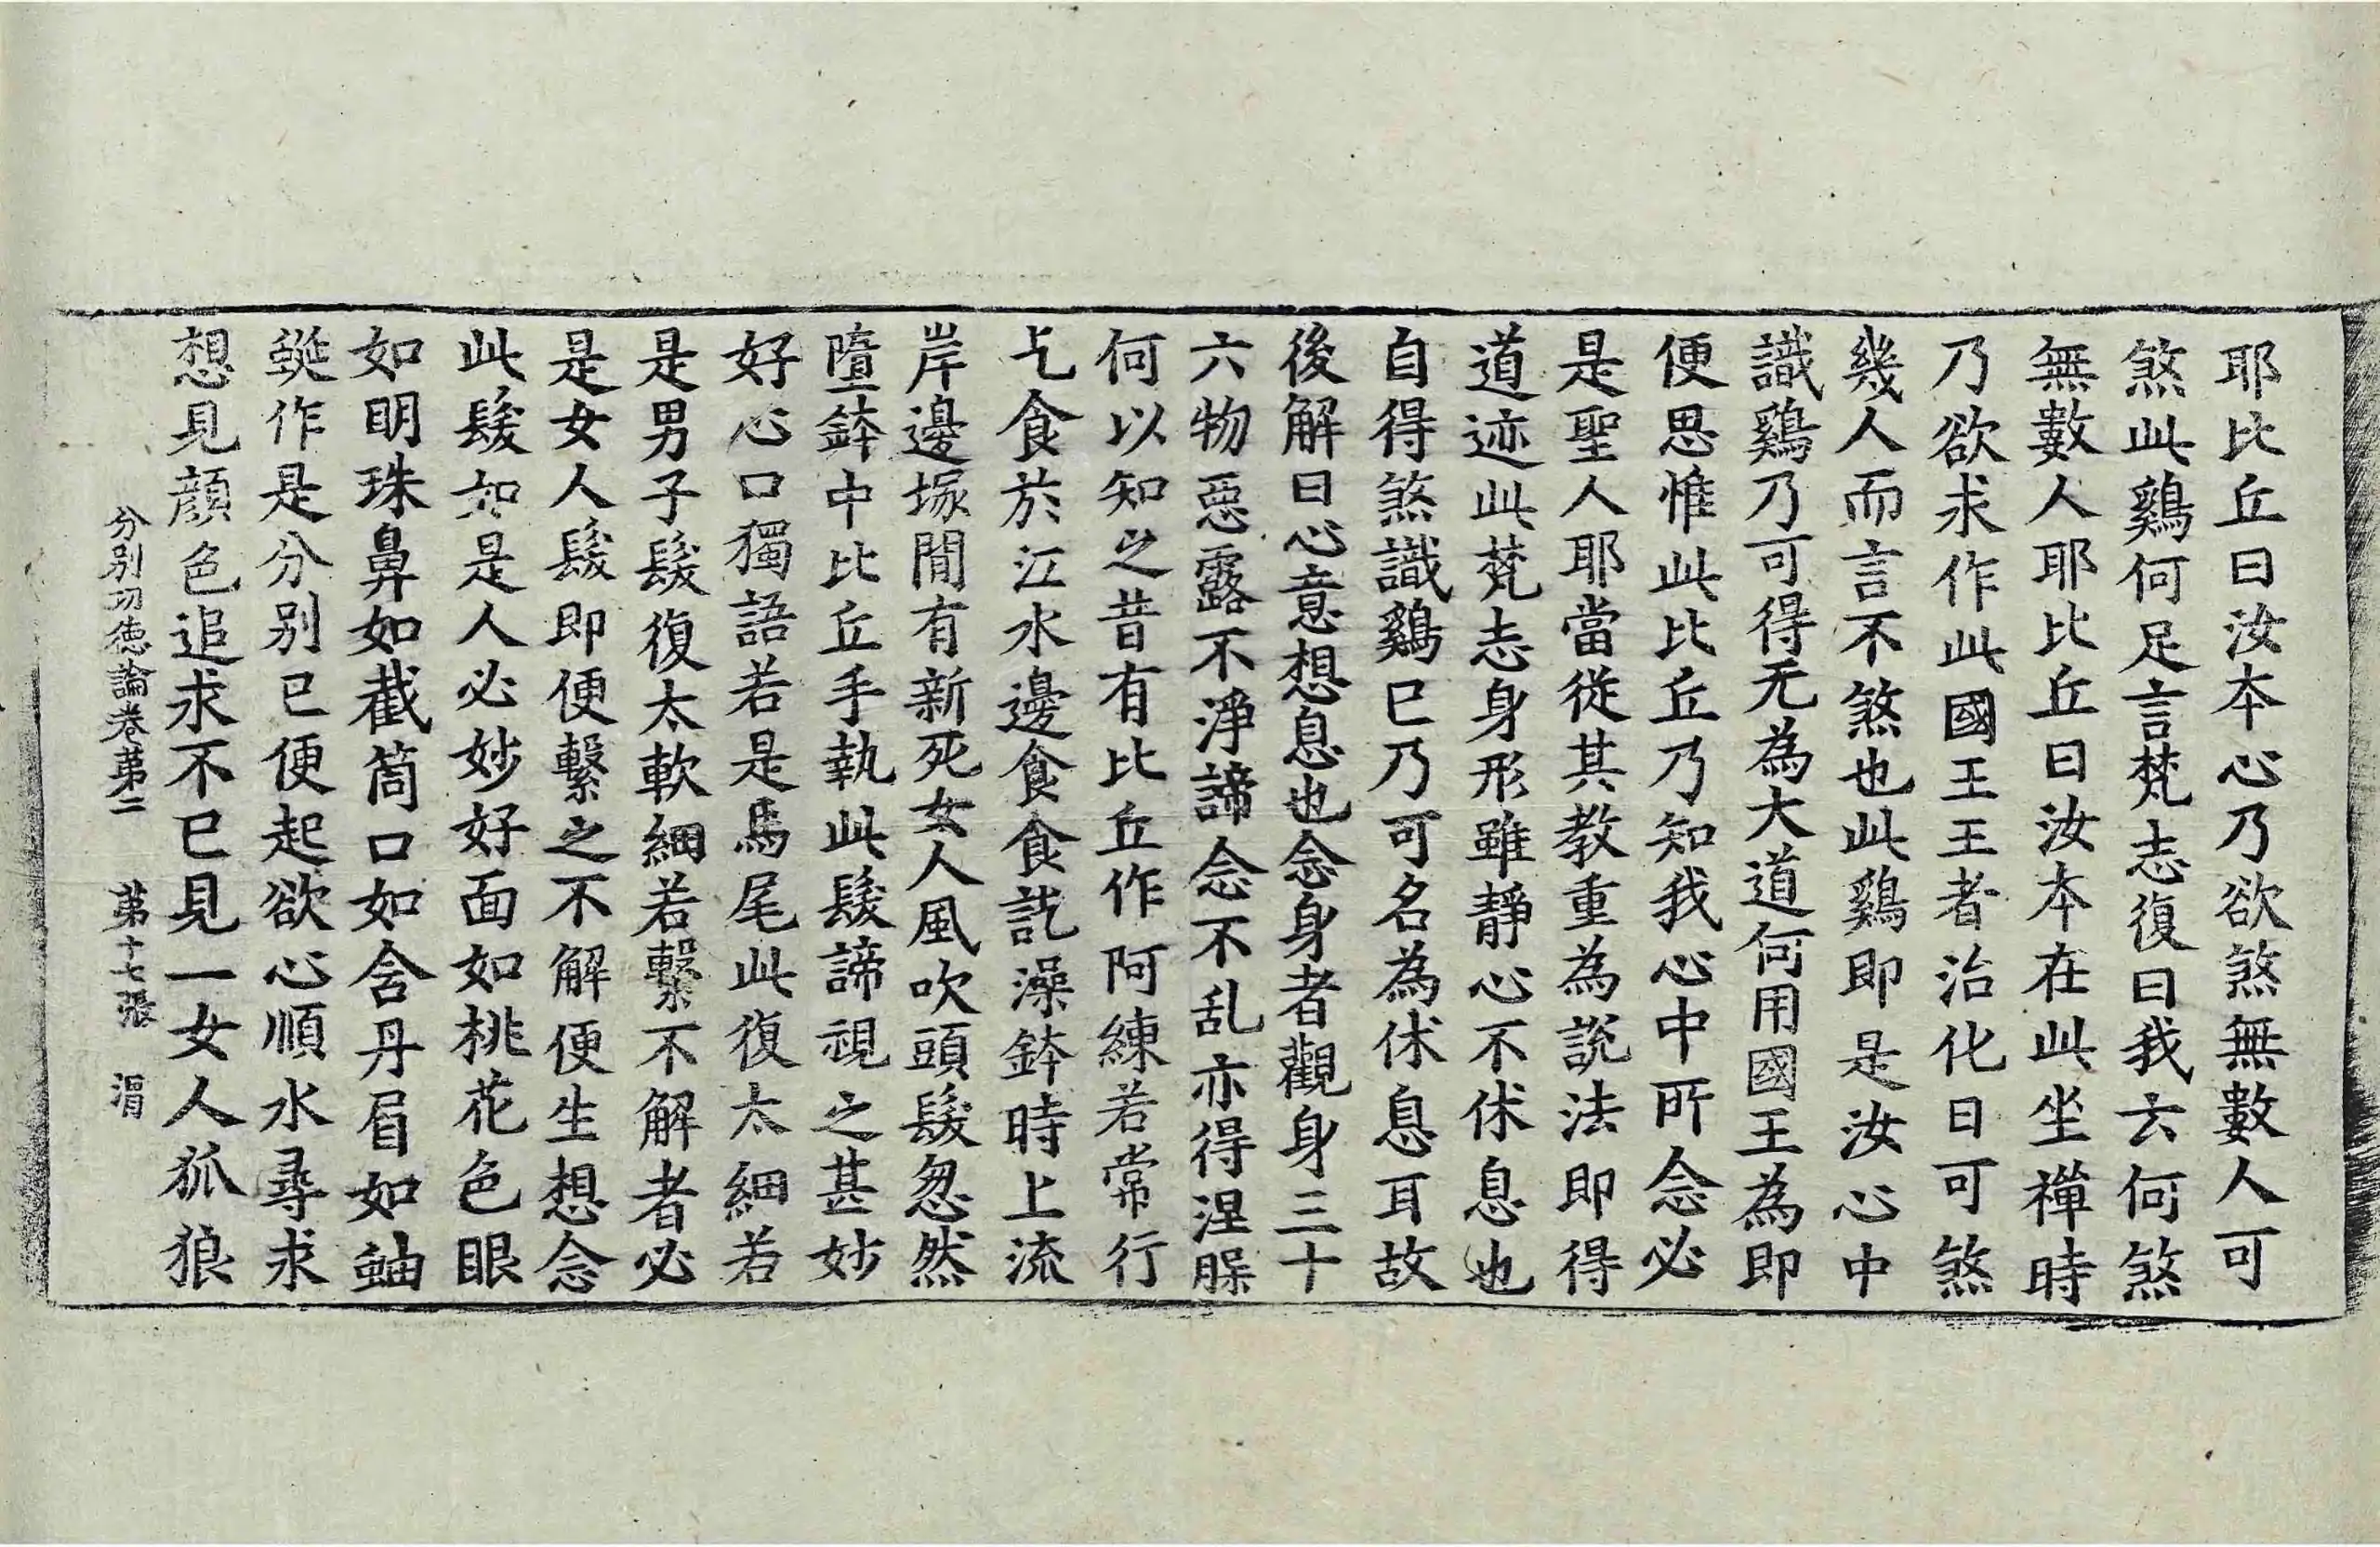 耶比丘曰汝本心乃欲煞無數人可
煞此鷄何足言梵志復曰我云何煞
無數人耶比丘曰汝本在此坐禪時
乃欲求作此國王王者治化日可煞
幾人而言不煞也此鷄即是汝心中
識鷄乃可得无為大道何用國王為即
便思惟此比丘乃知我心中所念必
是聖人耶當從其教重為說法即得
道迹此梵志身形雖靜心不休息也
自得煞識鷄已乃可名為休息耳故
後解曰心意想息也念身者觀身三十
六物惡露不淨諦念不乱亦得涅槃
何以知之昔有比丘作阿練若常行
乞食於江水邊食食訖澡鉢時上流
岸邊塚間有新死女人風吹頭髮忽然
墮鉢中比丘手執此髮諦視之甚妙
好心口獨語若是馬尾此復太細若
是男子髮復太軟細若繫不解者必
是女人髮即便繫之不解便生想念
此髮如是人必妙好面如桃花色眼
如明珠鼻如截筒口如含丹眉如蚰
蜒作是分別已便起欲心順水尋求
想見顔色追求不已見一女人狐狼
分別功德論卷第二 第十七張 涓